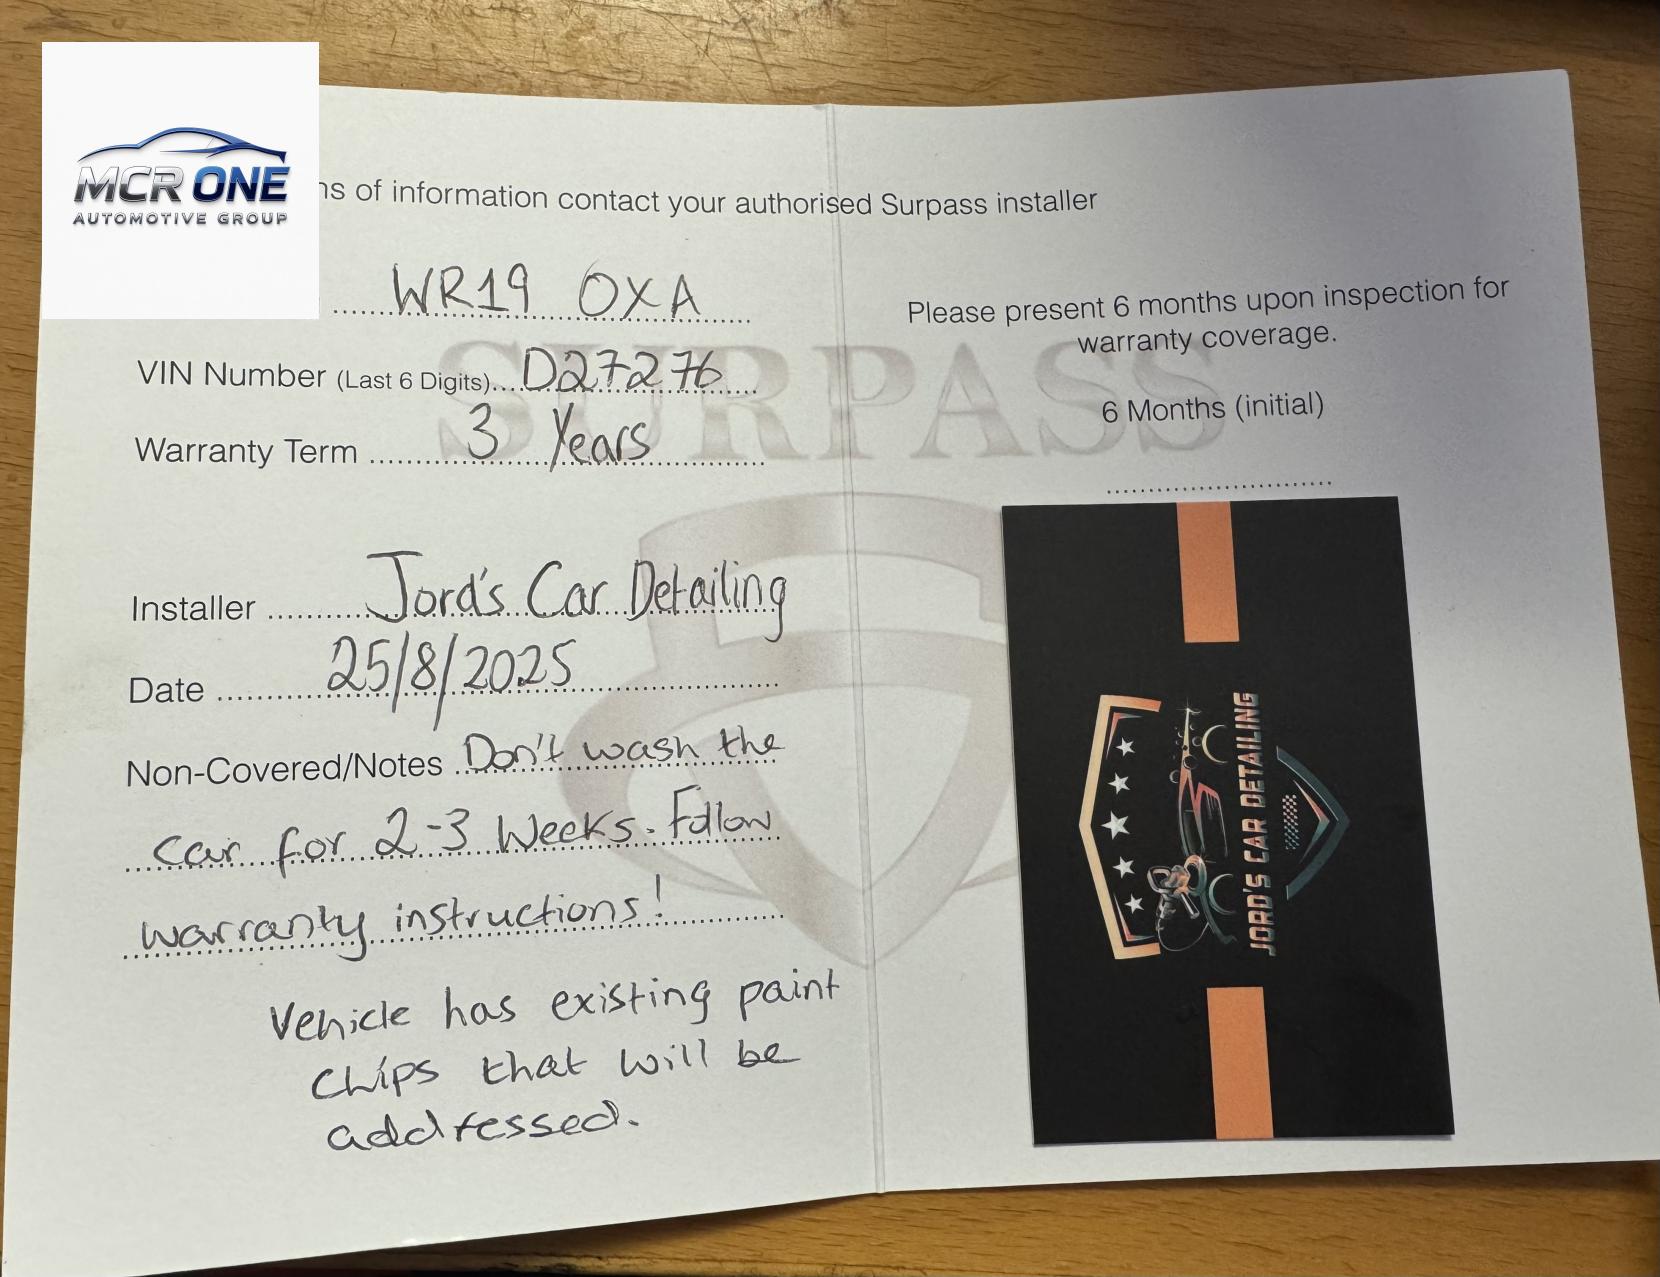 MCR ONE
AUTOMOTIVE GROUP
of information contact your authorised Surpass installer
WR19 OXA
VIN Number (Last 6 Digits) D27276
Warranty Term 3 Years
Installer Jord's Car Detailing
Date 25/8/2025
Non-Covered/Notes Don't wash the
car for 2-3 Weeks. Follow
warranty instructions!
Vehicle has existing paint
chips that will be
addressed.
SURPASS
Please present 6 months upon inspection for
warranty coverage.
6 Months (initial)
JORD'S CAR DETAILING